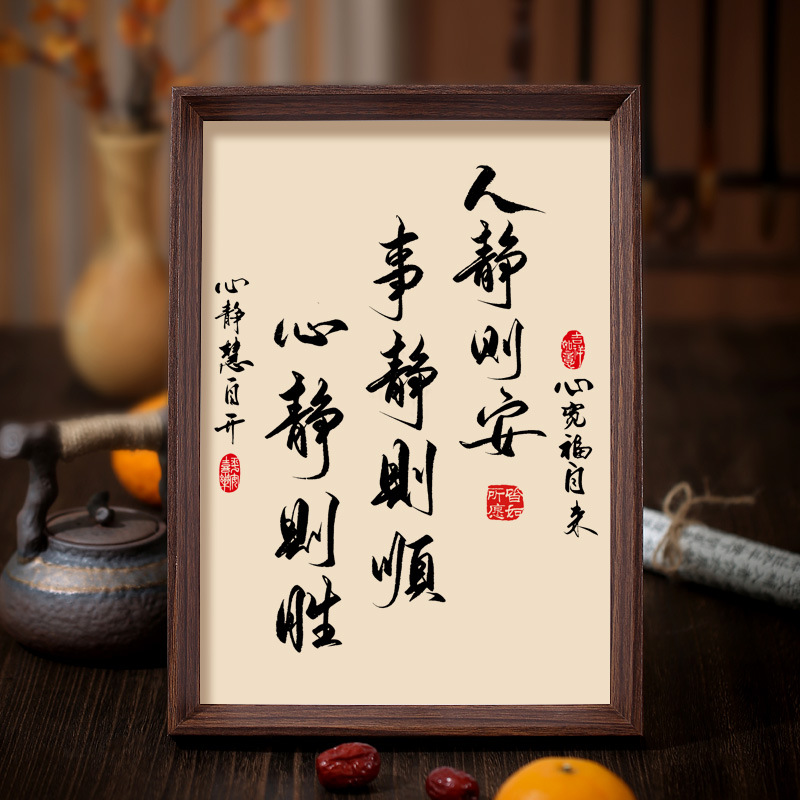 吉祥如意
心宽福自来
人静则安
皆如所愿
事静則順
心静則胜
心静慧自开